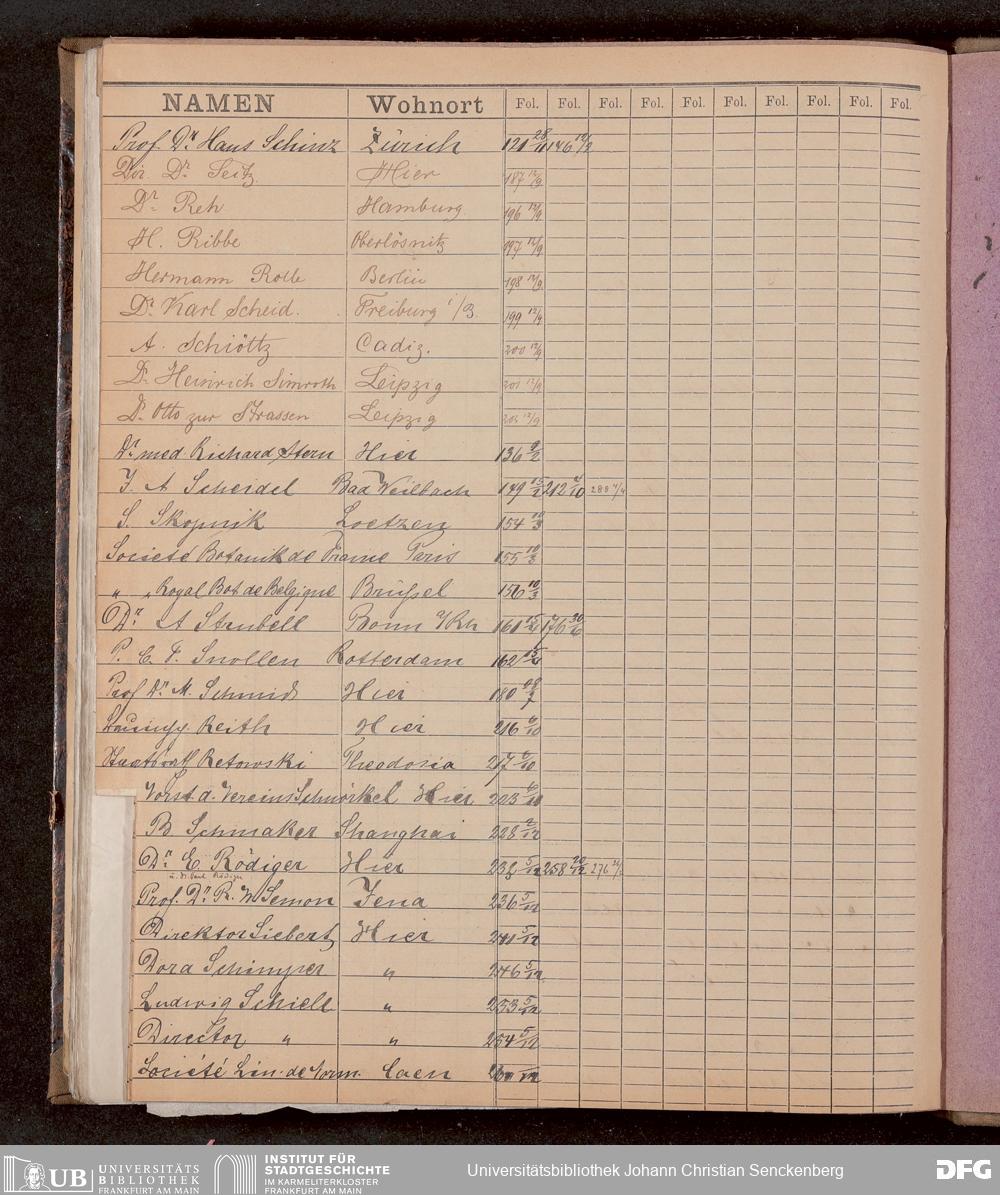 NAMEN Wohnort Fol. Fol. Fol. Fol. Fol. Fol. Fol. Fol. Fol. Fol.
Prof. Dr. Hans Schinz Zürich 121 28/11 146 12/2
Dir. Dr. Seitz Hier 187 12/9
Dr. Reh Hamburg 196 12/9
H. Ribbe Oberlösnitz 197 12/9
Hermann Rolle Berlin 198 12/9
Dr. Karl Scheid. Freiburg i/B. 199 12/9
A. Schiöttz Cadiz. 200 12/9
Dr. Heinrich Simroth Leipzig 201 12/9
Dr. Otto zur Strassen Leipzig 202 12/9
Dr. med. Richard Stern Hier 136 9/2
J. A. Scheidel Bad Weilbach 149 15/2 212 4/10 288
S. Skopnik Loetzen 154 10/3
Societé Botanik de France Paris 155 10/3
" " Royal Bot. de Belgique Brüssel 156 10/3
Dr. A Strubell Bonn a/Rh 161 176 30/6
P. C. T. Snollen Rotterdam 162
Prof Dr. M. Schmidt Hier 180
Reith Hier 216 6/10
Staatsrath Retowski Theodosia 217 6/10
Vorst d. Vereins Schnörkel Hier 223 6/10
B Schmaker Shanghai 228 2/12
Dr. E. Rödiger Hier 232 5/12 258 20/12 276
u. Dr. Paul Rödiger
Prof. Dr. R. W Semon Jena 236 5/12
Direktor Siebert Hier 241 5/12
Dora Schimper " 246 5/12
Ludwig Schiele " 253 5/12
Director " " 254 5/12
Société Lin. de Norm. Caen
UB UNIVERSITÄTS
BIBLIOTHEK
FRANKFURT AM MAIN
INSTITUT FÜR
STADTGESCHICHTE
IM KARMELITERKLOSTER
FRANKFURT AM MAIN
Universitätsbibliothek Johann Christian Senckenberg
DFG